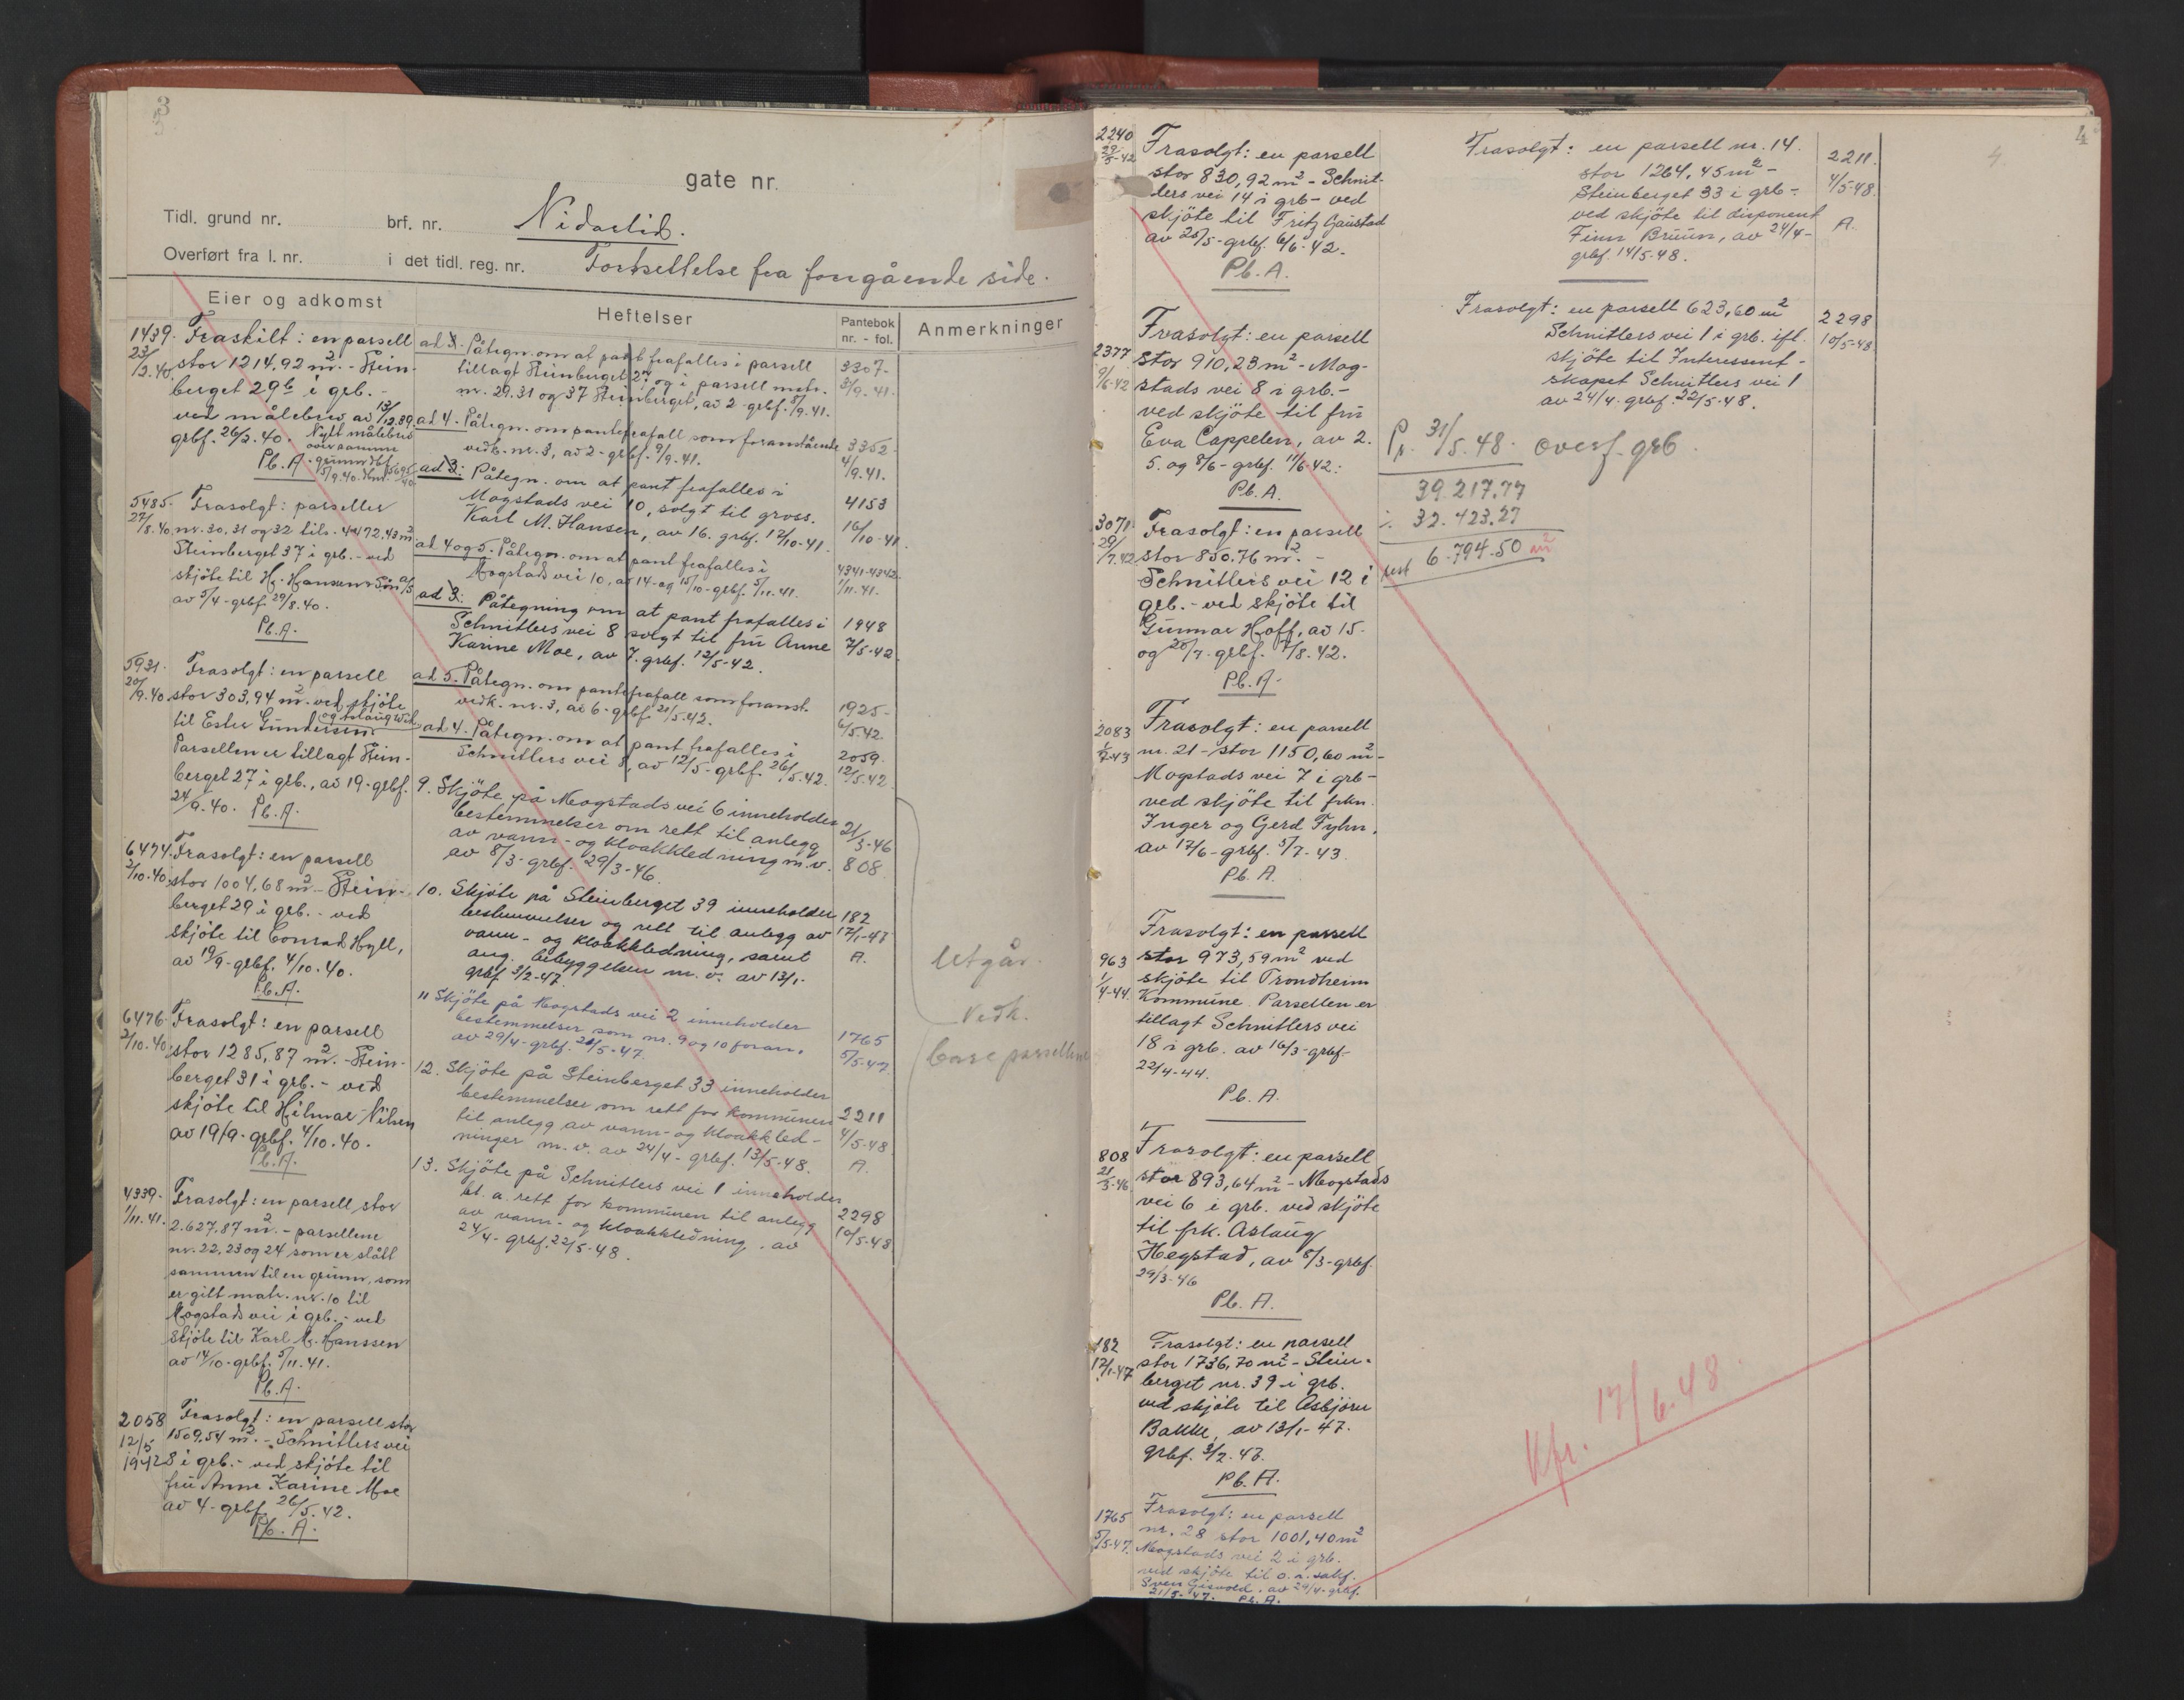 3
gate nr.
Tidl. grund nr. brf. nr. Nidarlid.
Overført fra l. nr. i det tidl. reg. nr. Fortsettelse fra forrgående side.
Eier og adkomst
1439. Fraskilt: en parsell
23/2.40 stor 1214,92 m². - Stein-
berget 29b i grb. -
ved målebrev av 13/12.39.
grbf. 26/2.40. Nytt målebrev
over samme
Pb. A. grunn dbf.
5485. Frasolgt: parseller
27/8.40 nr. 30, 31 og 32 tils. 4472,43 m²
Steinberget 37 i grb. - ved
skjöte til H. Hansen & Sön a/s
av 5/4 - grbf. 29/8.40.
Pb. A.
5931. Frasolgt: en parsell
20/9.40. stor 303,94 m². ved skjöte
til Ester Gundersen.
Parsellen er tillagt Stein-
berget 27 i grb., av 19 - grbf.
24/9.40. Pb. A.
6474. Frasolgt: en parsell
2/10.40. stor 1004,68 m². - Stein-
berget 29 i grb. - ved
skjöte til Conrad Hyll,
av 19/9 - grbf. 4/10.40.
Pb. A.
6476. Frasolgt: en parsell
2/10.40. stor 1285,87 m². - Stein-
berget 31 i grb. - ved
skjöte til Hilmar Nilsen
av 19/9 - grbf. 4/10.40.
Pb. A.
4339. Frasolgt: en parsell stor
1/11.41. 2.627,87 m². - parsellene
nr. 22, 23 og 24 som er slått
sammen til en grunn, som
er gitt matr. nr. 10 til
Mogstads vei i grb. - ved
skjöte til Karl M. Hanssen
av 14/10 - grbf. 5/11.41.
Pb. A.
2058 Frasolgt: en parsell stor
12/5 1509,54 m². - Schnitlers vei
1942 8 i grb. - ved skjöte til
fru Anne Karine Moe
av 4 - grbf. 26/5.42.
Pb. A.
Heftelser
Pantebok
nr. - fol.
ad 3. Påtegn. om at pant frafalles i parsell 3307-
tillagt Steinberget 27 og i parsell matr. 3/9.41.
nr. 29. 31 og 37 Steinberget, av 2 - grbf. 8/9.41.
ad 4. Påtegn. om pantefrafall som foranstående 3352-
vedk. nr. 3, av 2 - grbf. 9/9.41. 4/9.41.
ad 3: Påtegn. om at pant frafalles i
Mogstads vei 10, solgt til gross. 4153
Karl M. Hansen, av 16. grbf. 17/10-41. 16/10-41
ad 4 og 5. Påtegn. om at pant frafalles i 4341-4342
Mogstads vei 10, av 14 - og 15/10 - grbf. 5/11.41. 1/11.41.
ad 3: Påtegning om at pant frafalles i 1948
Schnitlers vei 8 solgt til fru Anne 7/5-42
Karine Moe, av 7. grbf. 12/5-42.
ad 5. Påtegn. om pantefrafall som foranst. 1925-
vedk. nr. 3, av 6 - grbf. 21/5.42. 6/5.42
ad 4. Påtegn. om at pant frafalles i 2059.
Schnitlers vei 8, av 12/5 - grbf. 26/5.42. 12/5.42
9. Skjöte på Mogstads vei 6 inneholder 21/3-46
bestemmelser om rett til anlegg 808
av vann- og kloakkledning m.v.
av 8/3 - grbf. 29/3-46.
10. Skjöte på Steinberget 39 inneholder 182
bestemmelser og rett til anlegg av 17/1-47
vann- og kloakkledning, samt A.
ang. bebyggelsen m. v. av 13/1 -
grbf 3/2-47.
11 Skjöte på Mogstads vei 2 inneholder 1765
bestemmelser som nr. 9 og 10 foran. 5/5-47
av 29/4 - grbf. 21/5-47.
12. Skjöte på Steinberget 33 inneholder
bestemmelser om rett for kommunen 2211
til anlegg av vann- og kloakkled- 4/5-48
ninger m. v. av 24/4 - grbf. 13/5-48. A.
13. Skjöte på Schnitlers vei 1 inneholder
bl. a. rett for kommunen til anlegg 2298
av vann- og kloakkledning. av 10/5-48
24/4 - grbf. 22/5-48.
Anmerkninger
Utgår.
Vedk.
bare parsellene
4
2240 Frasolgt: en parsell
29/5-42 stor 830,92 m² - Schnit-
lers vei 14 i grb - ved
skjöte til Fritz Gaustad
av 28/5 - grbf. 6/6-42.
Pb. A.
Frasolgt: en parsell
2377 stor 910,23 m² - Mog-
9/6-42 stads vei 8 i grb. -
ved skjöte til fru
Eva Cappelen, av 2.
5. og 8/6 - grbf. 11/6-42:
Pb. A.
3071. Frasolgt: en parsell
29/7.42 stor 850.76 m². -
Schnitlers vei 12 i
grb. - ved skjöte til
Gunnar Hoff, av 15 -
og 28/7. grbf. 7/8.42.
Pb. A.
2083 Frasolgt: en parsell
1/7-43 nr. 21 - stor 1150,60 m² -
Mogstads vei 7 i grb -
ved skjöte til frkn.
Inger og Gerd Fyhn,
av 17/6 - grbf. 5/7-43.
Pb. A.
Frasolgt: en parsell
963 stor 973,59 m² ved
1/4-44. skjöte til Trondheim
Kommune. Parsellen er
tillagt Schnitlers vei
18 i grb. av 16/3 - grbf -
22/4-44.
Pb. A.
Frasolgt: en parsell
808 stor 893,64 m² - Mogstads
21/3-46 vei 6 i grb. ved skjöte
til frk. Aslaug
Hegstad, av 8/3 - grbf.
29/3-46
Pb. A.
182 Frasolgt: en parsell
17/1-47 stor 1736,70 m² - Stein-
berget nr. 39 i grb.
ved skjöte til Asbjörn
Bakke, av 13/1-47.
grbf. 3/2.47.
Pb. A.
1765 Frasolgt: en parsell
5/5-47. nr. 28 stor 1001,40 m²
Mogstads vei 2 i grb.
ved skjöte til o.r. sakf.
Sven Gisvold. av 29/4 - grbf.
21/5-47. Pb. A.
Frasolgt: en parsell nr. 14. 2211.
stor 1264,45 m² - 4/5-48.
Steinberget 33 i grb - A.
ved skjöte til disponent
Finn Bruun, av 24/4 -
grbf. 14/5-48.
Frasolgt: en parsell 623,60 m² 2298
Schnitlers vei 1 i grb. ifl. 10/5-48
skjöte til Interessent-
skapet Schnitlers vei 1
av 24/4. grbf. 22/5-48.
Pr. 31/5.48. overf. grb.
39.217,77
÷ 32.423,27
rest 6.794.50 m²
Kfr. 17/6.48.
4.